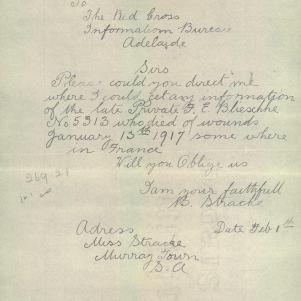 To
The Red Cross
Information Bureau
Adelaide
Sirs
Please could you direct me
where I could get any information
of the late Private F. E. Blieschke
No 5313 who died of wounds
January 13th 1917 some where
in France
Will you Oblige us
I am your faithfull
B. Stracke
Adress Date Feb 1st
Miss Stracke
Murray Town
S.A